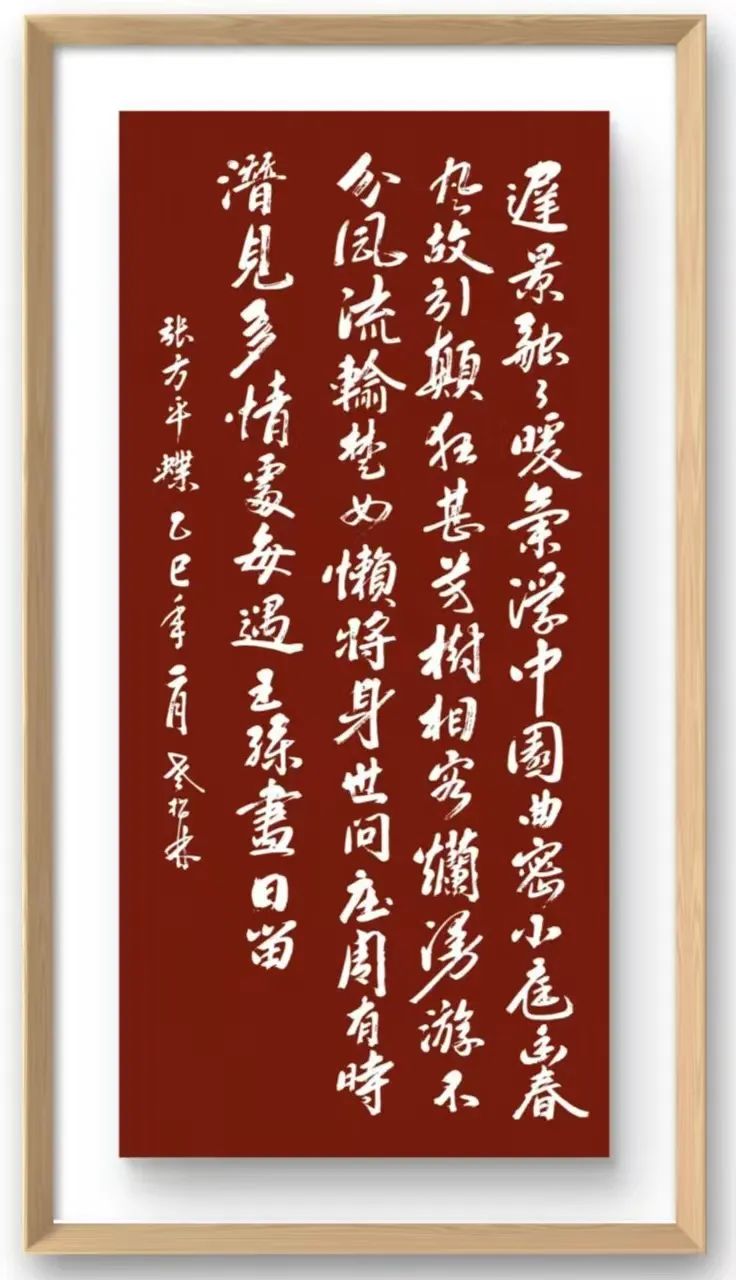 遲景融々暖氣浮中園曲密小庭幽春
風故引顛狂甚芳樹相容爛漫游不
分風流輸楚女懶將身世問庄周有時
潛見多情處每遇王孫盡日留
張方平蝶乙巳年二月松林